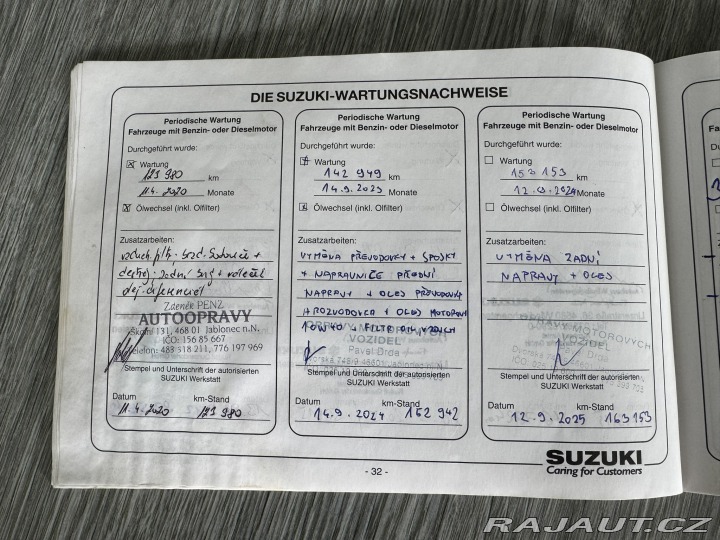 DIE SUZUKI-WARTUNGSNACHWEISE
Periodische Wartung
Fahrzeuge mit Benzin- oder Dieselmotor
Durchgeführt wurde:
Wartung
km
11.4. 2020 Monate
Ölwechsel (inkl. Olfilter)
Zusatzarbeiten:
Zdeněk PENZ
AUTOOPRAVY
Školní 131, 468 01 Jablonec n.N.
IČO: 156 85 667
Telefon: 483 318 211, 776 197 969
Stempel und Unterschrift der autorisierten
SUZUKI Werkstatt
Datum km-Stand
11.4. 2020
Periodische Wartung
Fahrzeuge mit Benzin- oder Dieselmotor
Durchgeführt wurde:
Wartung
142 949 km
14.9. 2023 Monate
Ölwechsel (inkl. Olfilter)
Zusatzarbeiten:
VÝMĚNA PŘEVODOVKY + SPOJKY
+ NAPRAVNICE PŘEDNÍ
NAPRAVY + OLEJ PŘEVODOVKA
A ROZVODOVKA + OLEJ MOTOROVÝ
10W40 + FILTR
VOZIDEL
Pavel Drda
Stempel und Unterschrift der autorisierten
SUZUKI Werkstatt
Datum km-Stand
14.9. 2024 152 942
Periodische Wartung
Fahrzeuge mit Benzin- oder Dieselmotor
Durchgeführt wurde:
Wartung
153 153 km
12.9. 2024 Monate
Ölwechsel (inkl. Olfilter)
Zusatzarbeiten:
VÝMĚNA ZADNÍ
NAPRAVY + OLEJ
MOTOROVÝCH
Drda
Stempel und Unterschrift der autorisierten
SUZUKI Werkstatt
Datum km-Stand
12.9. 2025 163 153
- 32 -
SUZUKI
Caring for Customers
RAJAUT.CZ